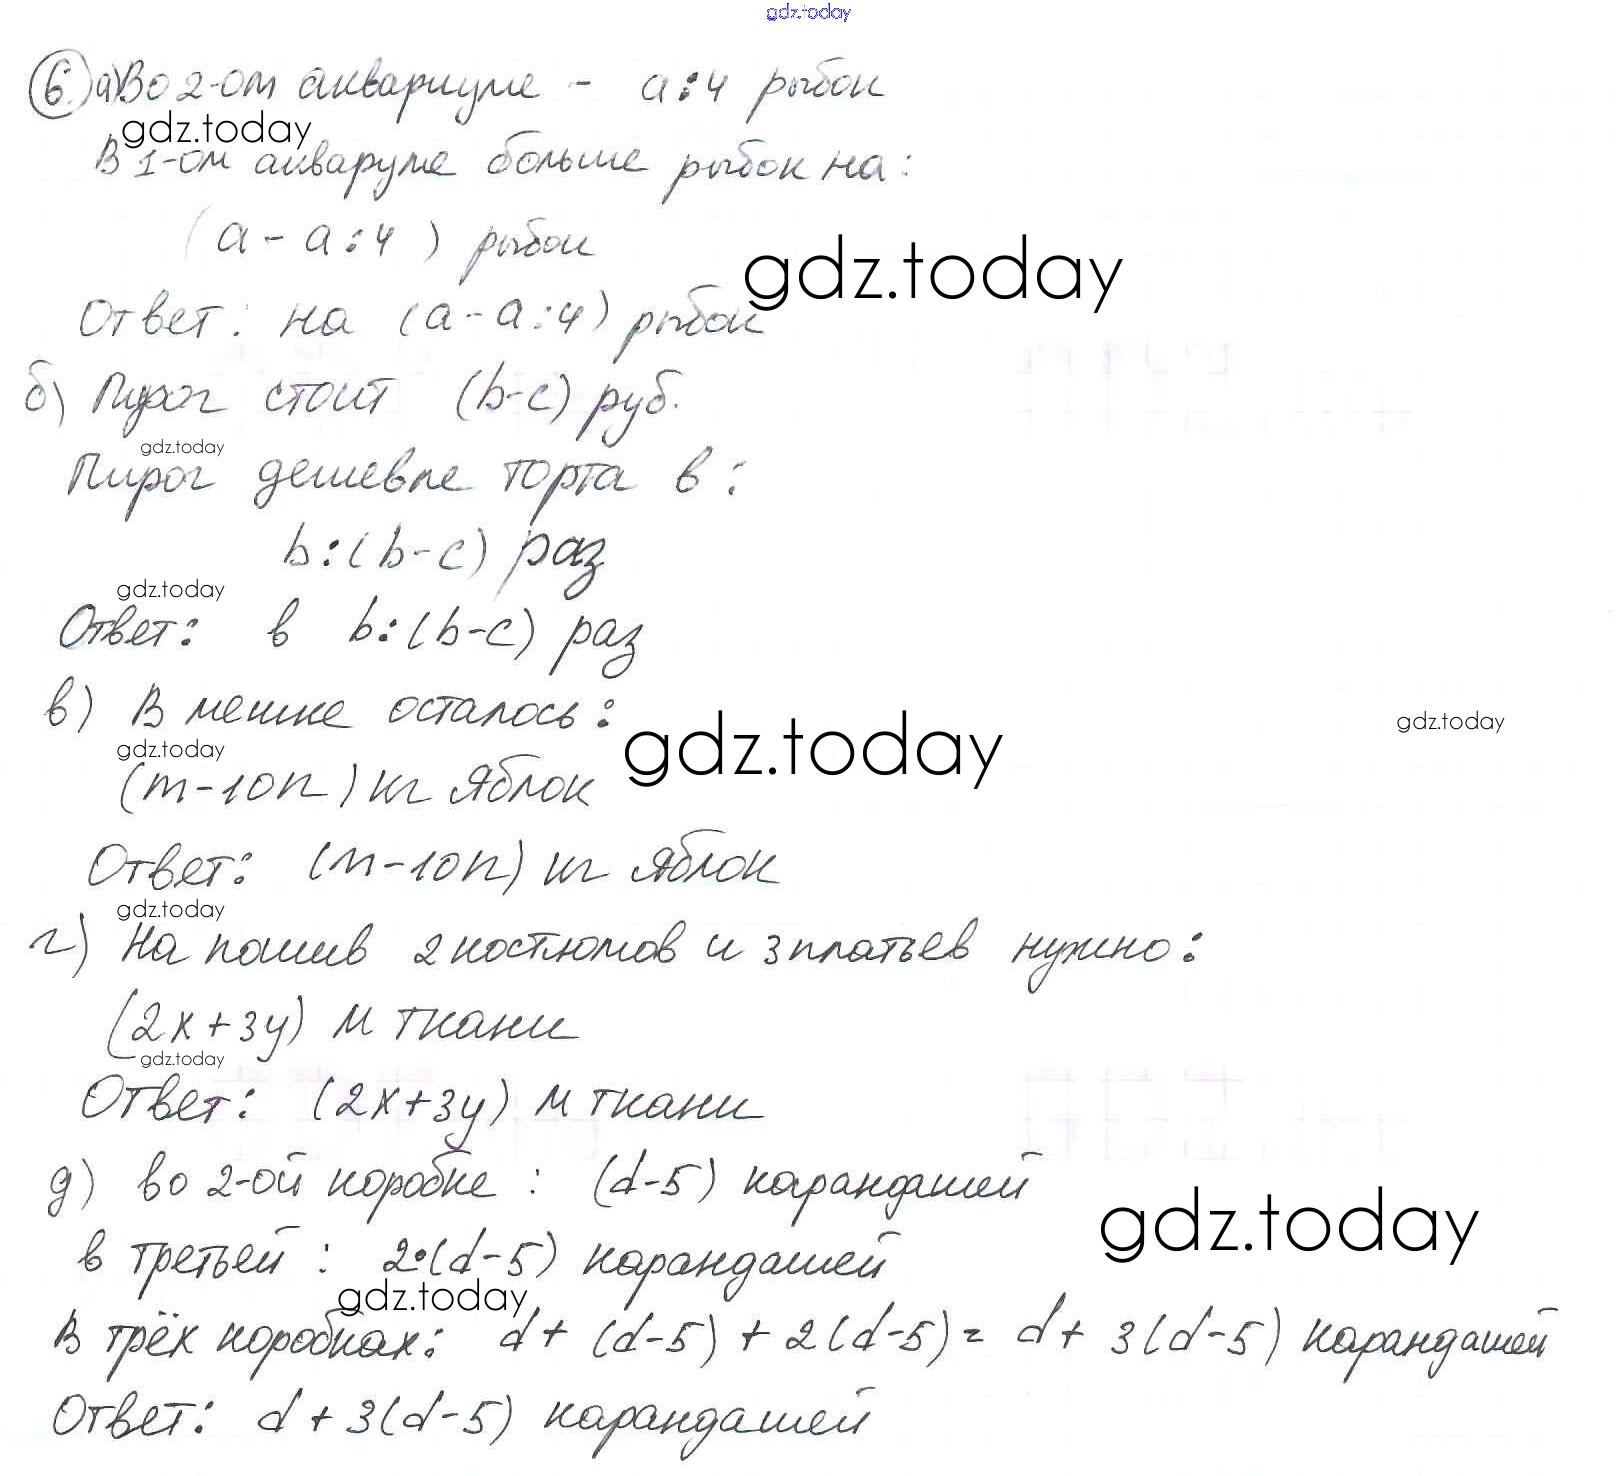 gdz.today
6. а) Во 2-ом аквариуме - а:4 рыбок
gdz.today
В 1-ом акваруме больше рыбок на:
(а - а:4) рыбок
gdz.today
Ответ: на (а - а:4) рыбок
б) Пирог стоит (b-c) руб.
gdz.today
Пирог дешевле торта в:
b:(b-c) раз
gdz.today
Ответ: в b:(b-c) раз
в) В мешке осталось:
gdz.today
gdz.today
gdz.today
(m-10n) кг яблок
Ответ: (m-10n) кг яблок
gdz.today
г) На пошив 2 костюмов и 3 платьев нужно:
(2x+3y) м ткани
gdz.today
Ответ: (2x+3y) м ткани
д) во 2-ой коробке: (d-5) карандашей
gdz.today
в третьей: 2·(d-5) карандашей
gdz.today
В трёх коробках: d+ (d-5) + 2(d-5) = d+ 3(d-5) карандашей
Ответ: d+3(d-5) карандашей